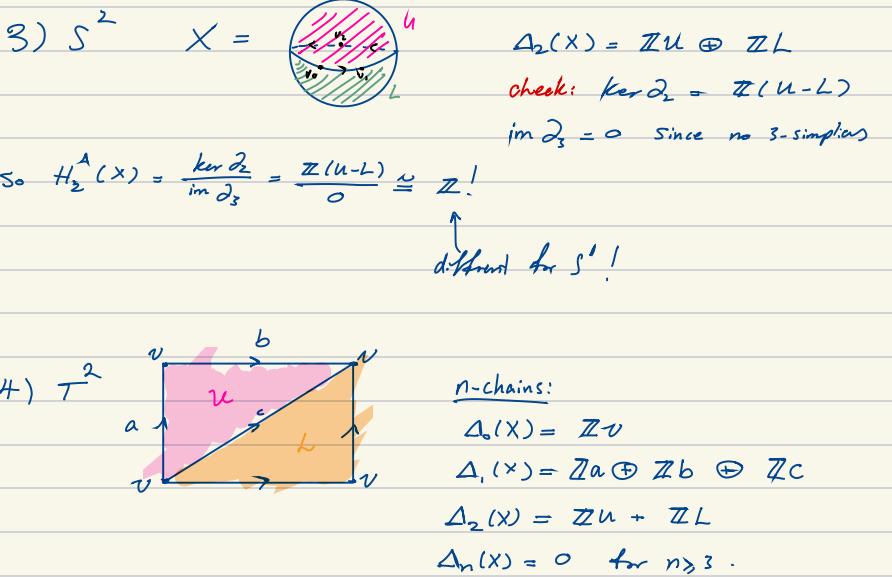 3) S² X = U
v₂
v₀ v₁
L
Δ₂(X) = ℤU ⊕ ℤL
check: ker ∂₂ = ℤ(U-L)
im ∂₃ = 0 since no 3-simplices
So H₂^Δ(X) = ker ∂₂ / im ∂₃ = ℤ(U-L) / 0 ≅ ℤ!
different for S¹!
4) T²
v b v
a U c L
v v
n-chains:
Δ₀(X) = ℤv
Δ₁(X) = ℤa ⊕ ℤb ⊕ ℤc
Δ₂(X) = ℤU + ℤL
Δn(X) = 0 for n≥3.